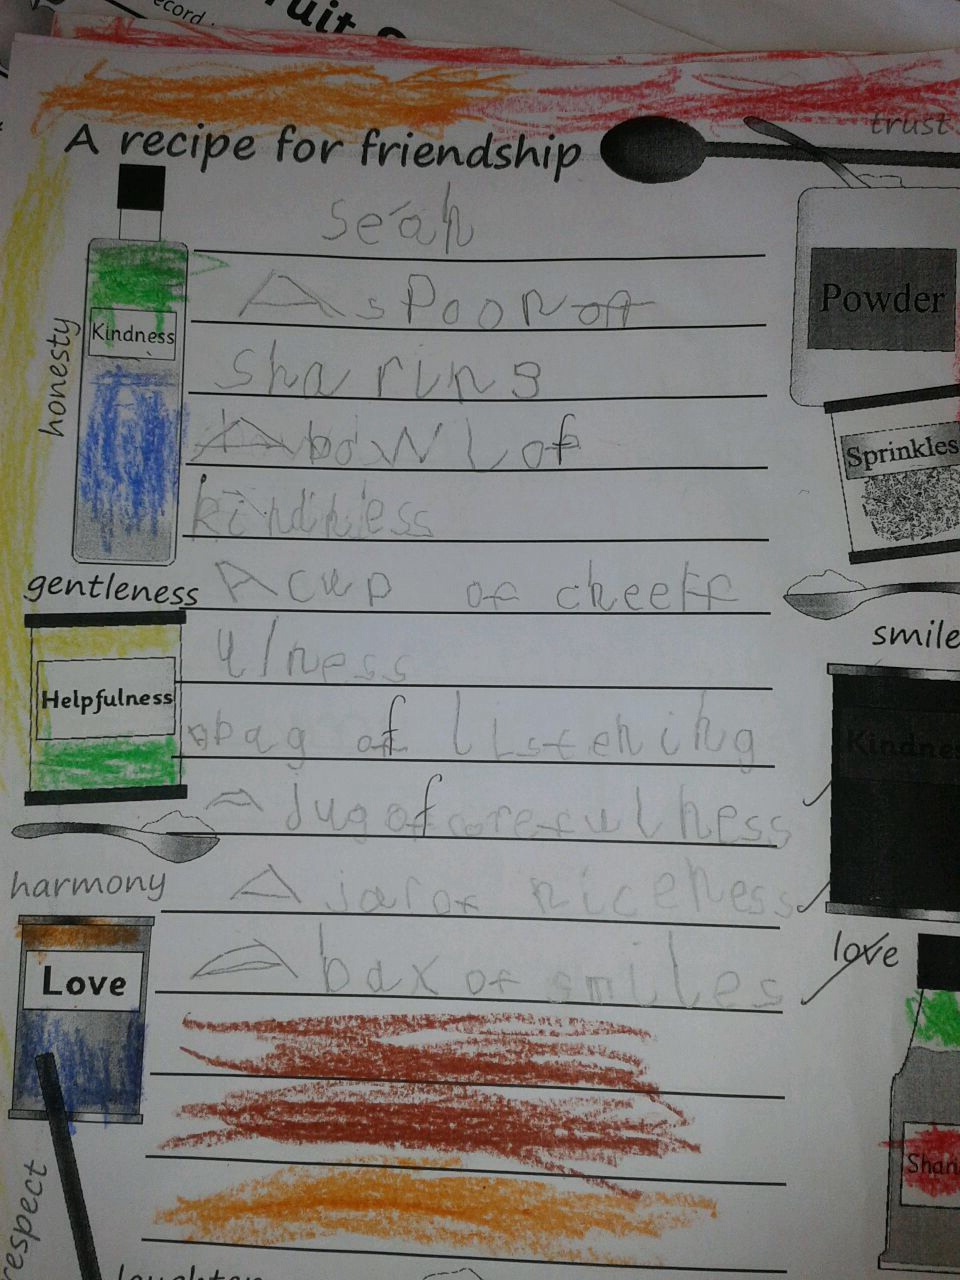 record
A recipe for friendship
trust
seán
A spoon of
sharing
Powder
Kindness
honesty
A bowl of
Sprinkles
kindness
gentleness
A cup of cheerf
ulness
smile
Helpfulness
a bag of listening
Kindne
A jug of carefulness
harmony
A jar of niceness
love
A box of smiles
Love
Shari
respect
laughter